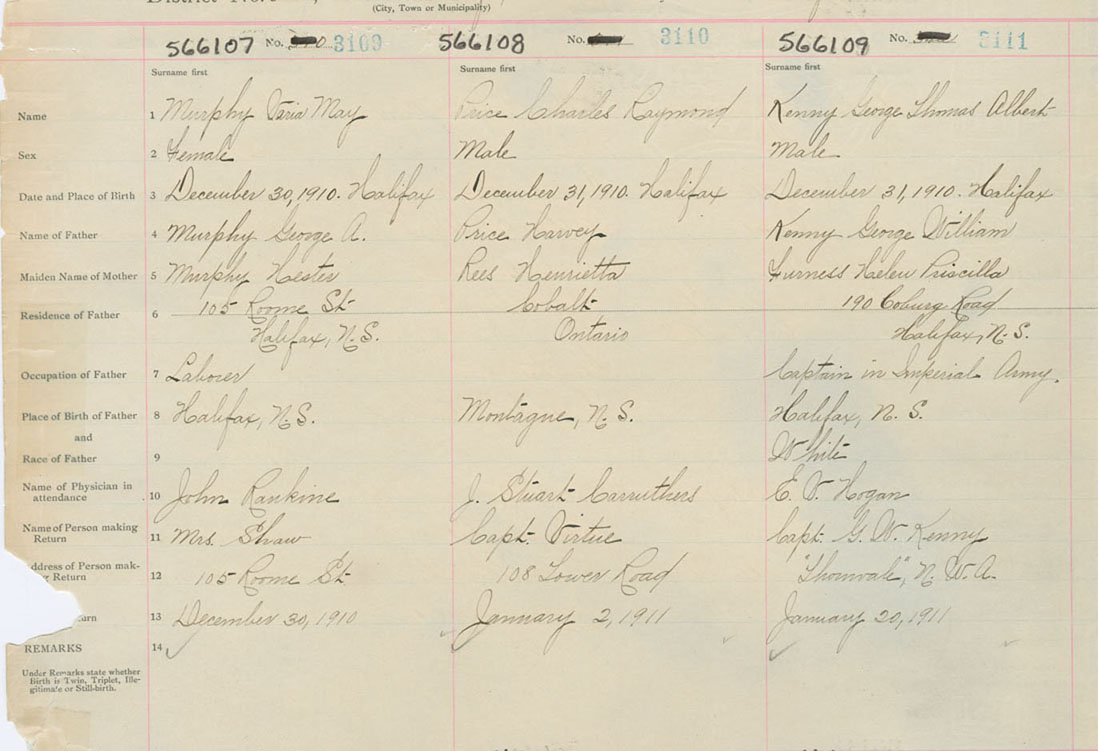 (City, Town or Municipality)
566107 No. 3109 566108 No. 3110 566109 No. 3111
Surname first Surname first Surname first
Name 1 Murphy Varia May Price Charles Raymond Kenny George Thomas Albert
Sex 2 Female Male Male
Date and Place of Birth 3 December 30, 1910. Halifax December 31, 1910. Halifax December 31, 1910. Halifax
Name of Father 4 Murphy George A. Price Harvey Kenny George William
Maiden Name of Mother 5 Murphy Hester Rees Henrietta Furness Helen Priscilla
Residence of Father 6 105 Roome St Cobalt 190 Coburg Road
Halifax, N.S. Ontario Halifax, N.S.
Occupation of Father 7 Laborer Captain in Imperial Army.
Place of Birth of Father 8 Halifax, N.S. Montague, N.S. Halifax, N.S.
and
Race of Father 9 White
Name of Physician in
attendance 10 John Rankine J. Stuart Carruthers E. V. Hogan
Name of Person making
Return 11 Mrs. Shaw Capt. Virtue Capt. G. W. Kenny
ddress of Person mak-
Return 12 105 Roome St 108 Lower Road "Thornvale", N. W. A.
13 December 30, 1910 January 2, 1911 January 20, 1911
REMARKS 14
Under Remarks state whether
Birth is Twin, Triplet, Ille-
gitimate or Still-birth.